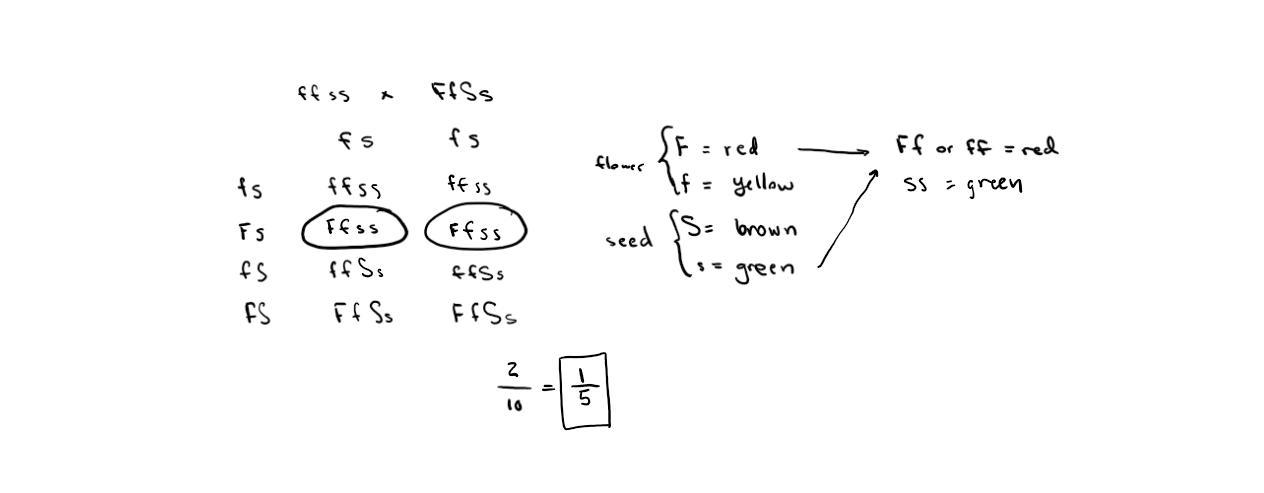 ffss x FfSs
fs fs
fs ffss ffss
Fs Ffss Ffss
fS ffSs ffSs
FS FfSs FfSs
2/10 = 1/5
flower { F = red
f = yellow
seed { S = brown
s = green
Ff or FF = red
ss = green